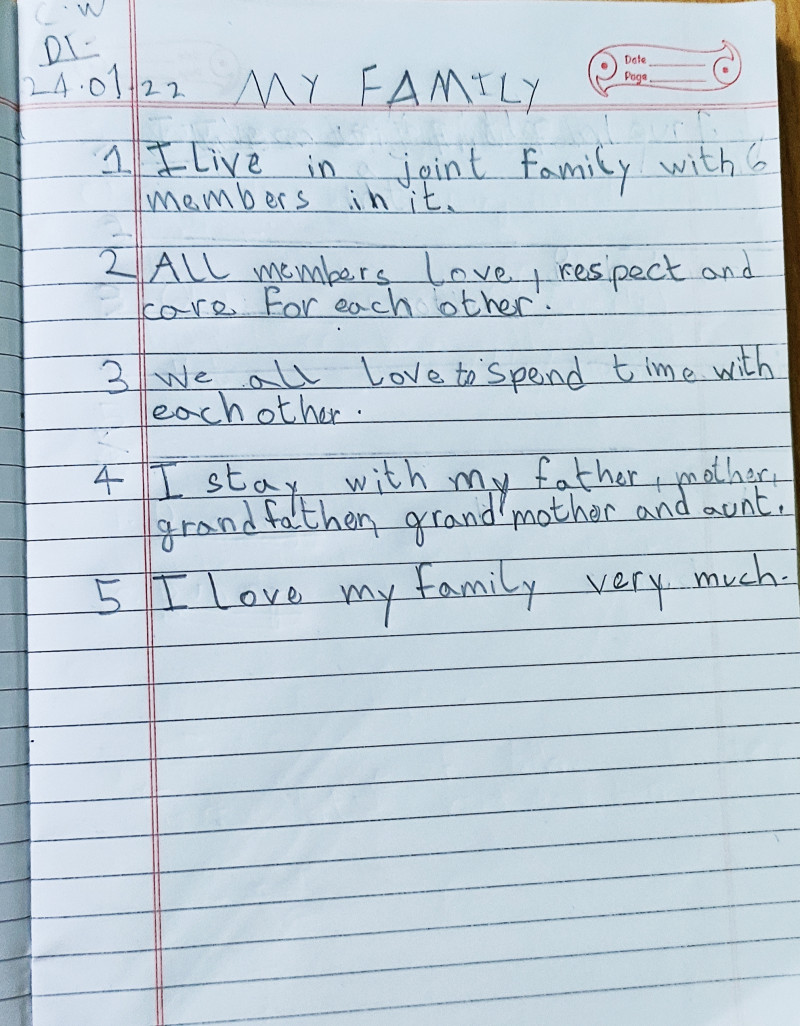 C.W
Dt-
24.01.22 MY FAMILY
Date
Page
1 I Live in joint Family with 6
members in it.
2 ALL members Love, respect and
care For each other.
3 We all Love to spend time with
each other.
4 I stay with my father, mother,
grandfather, grandmother and aunt.
5 I Love my family very much.